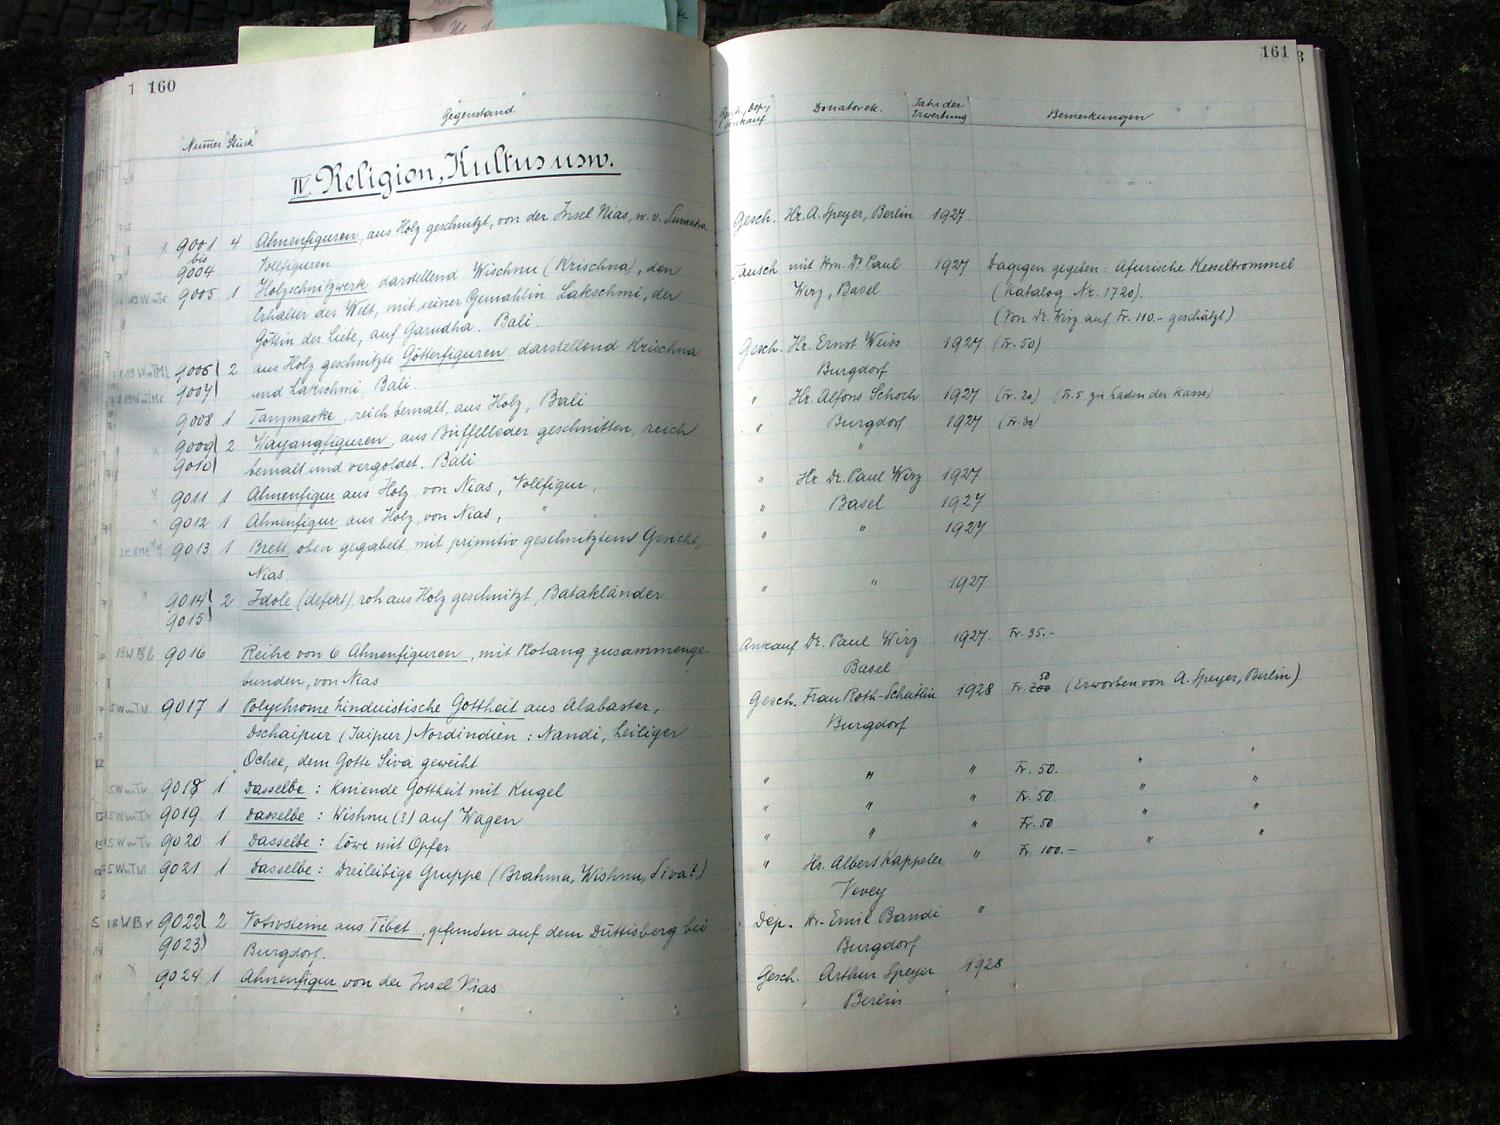 1 160
Nummer Stück Gegenstand
IV. Religion, Kultus usw.
9001 4 Ahnenfiguren, aus Holz geschnitzt, von der Insel Nias, w. v. Sumatra
bis
9004 Vollfiguren
9005 1 Holzschnitzwerk darstellend Wischnu (Krischna), den
Erhalter der Welt, mit seiner Gemahlin Lakschmi, der
Göttin der Liebe, auf Garudha. Bali.
9006 2 aus Holz geschnitzte Götterfiguren, darstellend Krischna
9007 und Lakschmi Bali
9008 1 Tanzmaske, reich bemalt, aus Holz, Bali
9009 2 Wayangfiguren, aus Büffelleder geschnitten, reich
9010 bemalt und vergoldet. Bali
9011 1 Ahnenfigur aus Holz, von Nias, Vollfigur,
9012 1 Ahnenfigur aus Holz, von Nias, "
9013 1 Brett, oben gegabelt, mit primitiv geschnitztem Gesicht,
Nias.
9014 2 Idole (defekt), roh aus Holz geschnitzt, Batakländer
9015
19WBb 9016 Reihe von 6 Ahnenfiguren, mit Rotang zusammenge-
bunden, von Nias
9017 1 Polychrome hinduistische Gottheit aus Alabaster,
Dschaipur (Jaipur) Nordindien: Nandi, heiliger
Ochse, dem Gotte Siva geweiht
9018 1 Dasselbe: kniende Gottheit mit Kugel
9019 1 Dasselbe: Wishnu (?) auf Wagen
9020 1 Dasselbe: Löwe mit Opfer
9021 1 Dasselbe: Dreileibige Gruppe (Brahma, Wishnu, Siva?)
18WBv 9022 2 Votivsteine aus Tibet, gefunden auf dem Düttisberg bei
9023 Burgdorf.
9024 1 Ahnenfigur von der Insel Nias
161
Gesch., Dep., Ankauf Donator etc. Jahr der Erwerbung Bemerkungen
Gesch. Hr. A. Speyer, Berlin 1927
Tausch mit Hrn. Dr Paul 1927 Dagegen gegeben: Afurische Kesseltrommel
Wirz, Basel (Katalog Nr. 1720).
(Von Dr. Wirz auf Fr. 110.- geschätzt)
Gesch. Hr. Ernst Weiss 1927 (Fr. 50)
Burgdorf
" Hr. Alfons Schoch 1927 (Fr. 20) (Fr. 5 zu Laden der Kasse)
" Burgdorf 1927 (Fr. 30)
"
" Hr. Dr. Paul Wirz 1927
" Basel 1927
" " 1927
" " 1927
Ankauf Dr. Paul Wirz 1927. Fr. 35.-
Basel
Gesch. Frau Roth-Scheitlin 1928 Fr. 50 200 (Erworben von A. Speyer, Berlin)
Burgdorf
" " " Fr. 50. " "
" " " Fr. 50. " "
" " " Fr. 50 " "
" Hr. Albert Kappeler " Fr. 100.- " "
Vevey
Dep. Hr. Emil Bandi "
Burgdorf
Gesch. Arthur Speyer 1928
Berlin